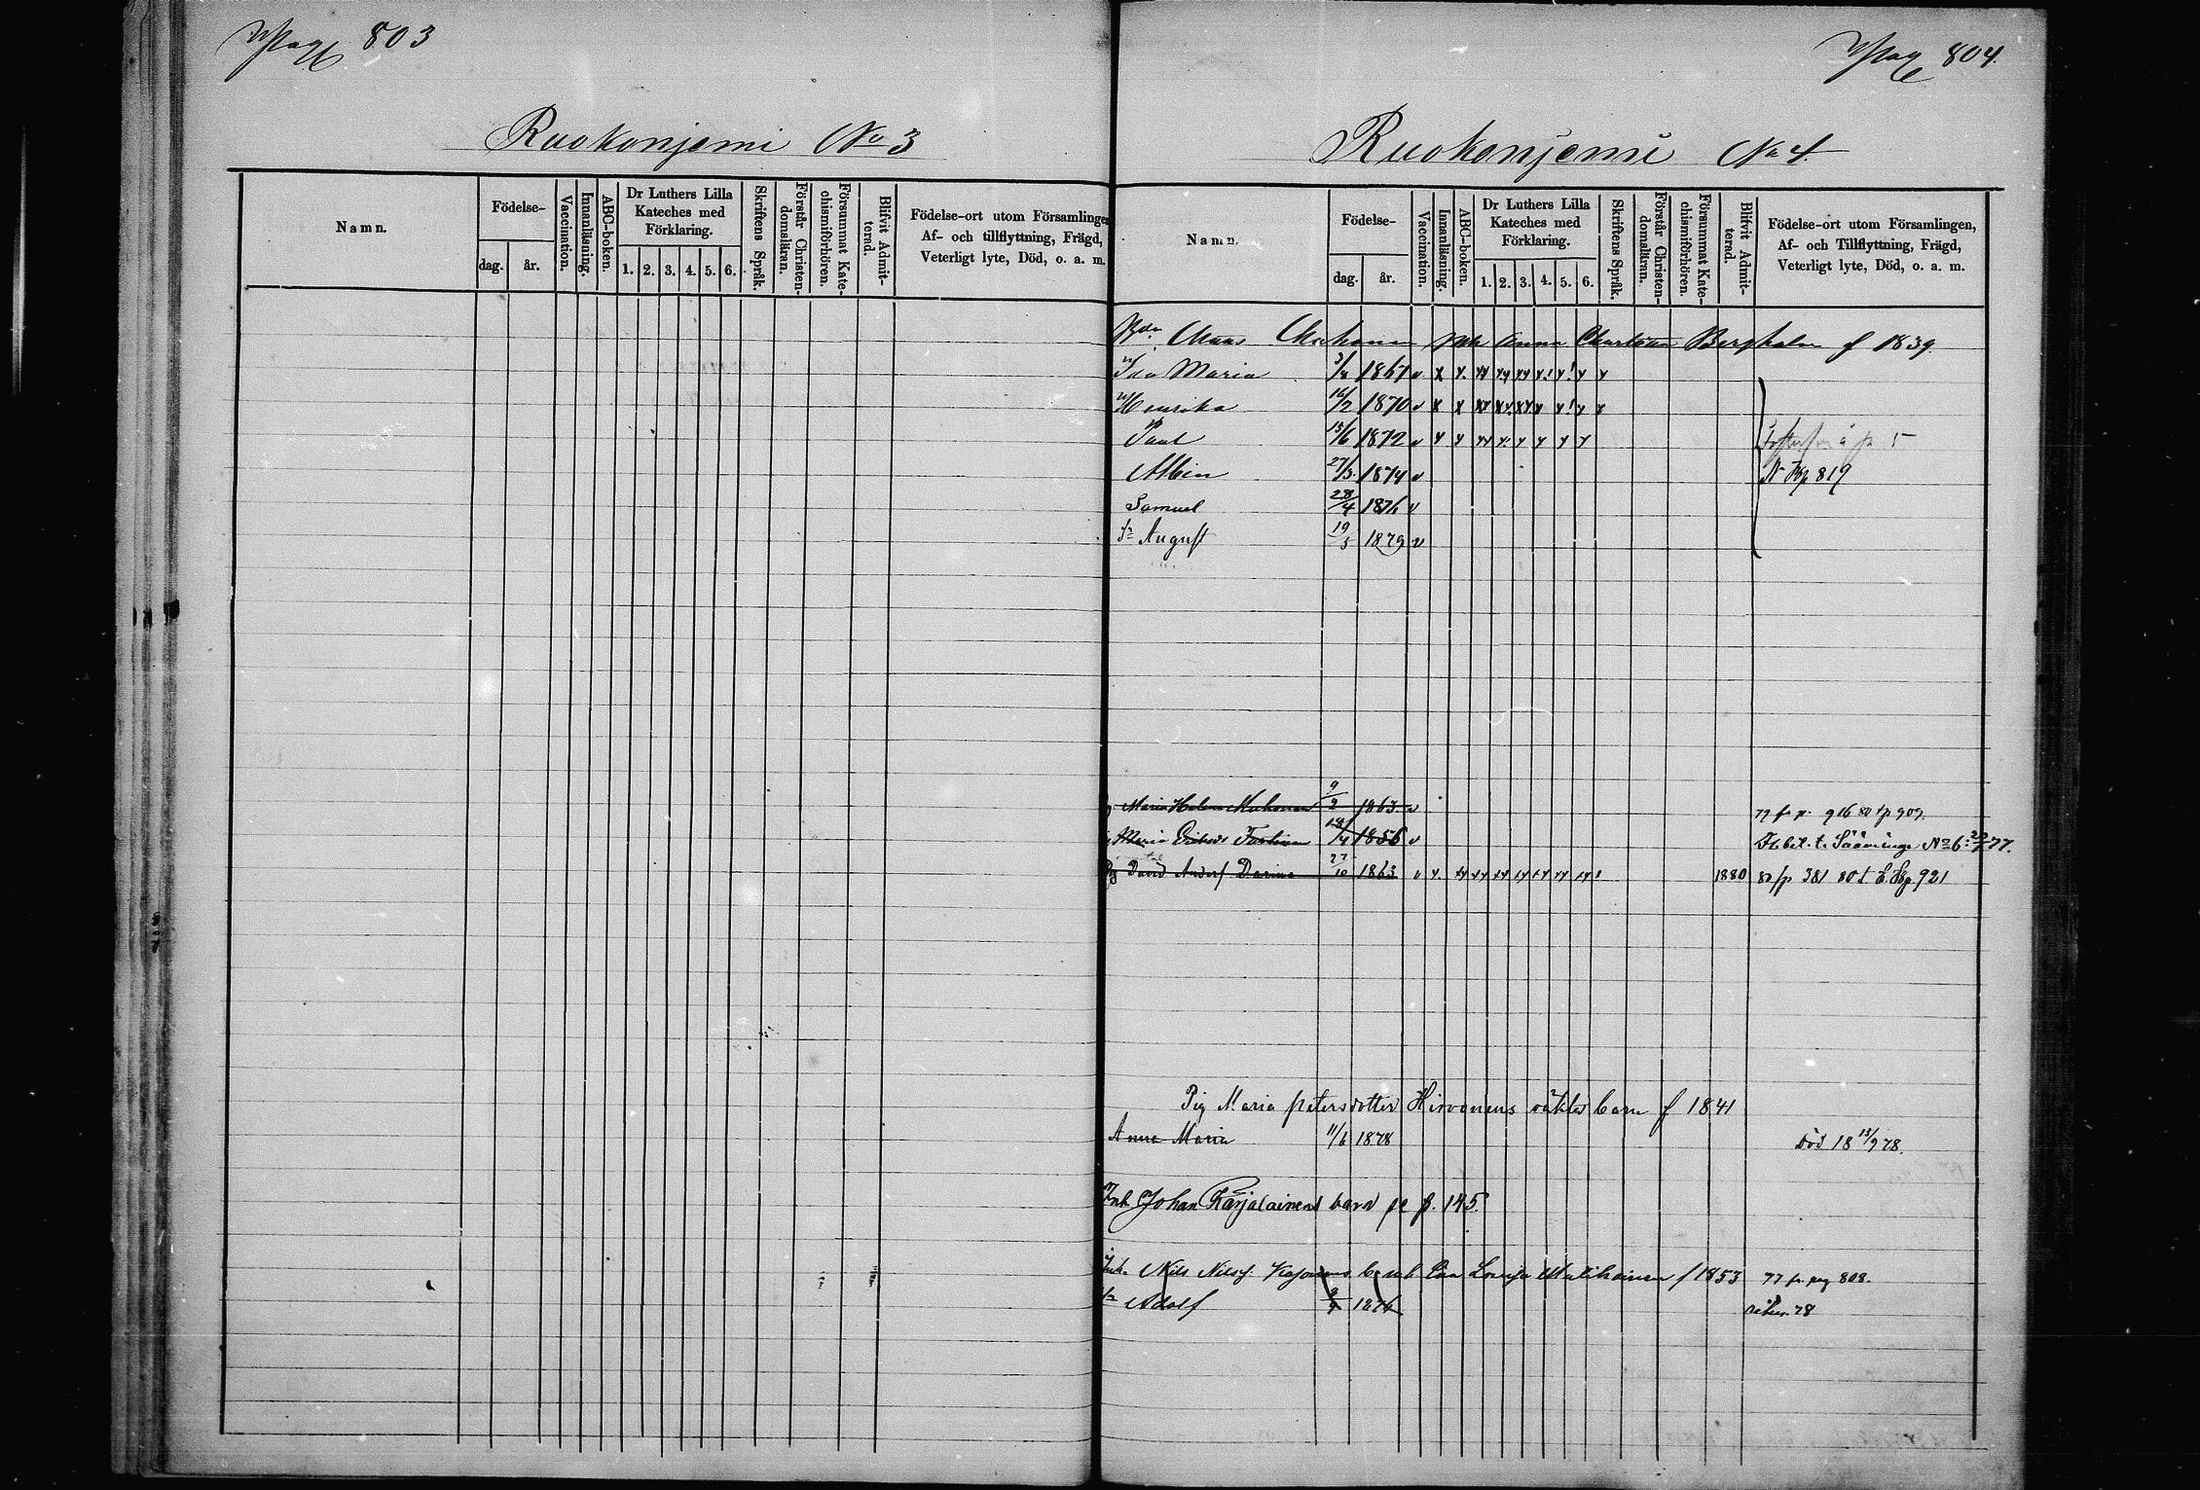 Pag 803
Ruokonjemi No 3
Namn.
Födelse-
dag.
år.
Vaccination.
Innanläsning.
ABC-boken.
Dr Luthers Lilla
Kateches med
Förklaring.
1. 2. 3. 4. 5. 6.
Skriftens Språk.
Förstår Christen-
domsläran.
Försummat Kate-
chismiförhören.
Blifvit Admit-
terad.
Födelse-ort utom Församlingen
Af- och tillflyttning, Frägd,
Veterligt lyte, Död, o. a. m.
Pag 804.
Ruokonjemi No 4.
Namn.
Födelse-
dag.
år.
Vaccination.
Innanläsning.
ABC-boken.
Dr Luthers Lilla
Kateches med
Förklaring.
1. 2. 3. 4. 5. 6.
Skriftens Språk.
Förstår Christen-
domsläran.
Försummat Kate-
chismiförhören.
Blifvit Admit-
terad.
Födelse-ort utom Församlingen,
Af- och Tillflyttning, Frägd,
Veterligt lyte, Död, o. a. m.
Anna Bergholm f 1839.
Ida Maria 3/8 1867
Henrika 16/2 1870
Paul 15/6 1872
Albin 27/3 1874 p 819
Samuel 28/4 1876
August 19/5 1879
Maria Helena Muhonen 9/2 1863 77 fr p. 916 80 t p 909.
Maria 1856 Flbet. t. Sääminge No 6: 77.
David Andersf 27/10 1863 1880 80 fp 381 80 t 921
Pig Maria Petersdotter Hirvonens oäkta barn f 1841
Anna Maria 11/6 1878 Död 18 13/9 78.
Inh Johan Karjalainens barn se p. 145
Inh. Nils Nilsf. Lovisa f 1853 77 fr pag 808.
Adolf 1876 78